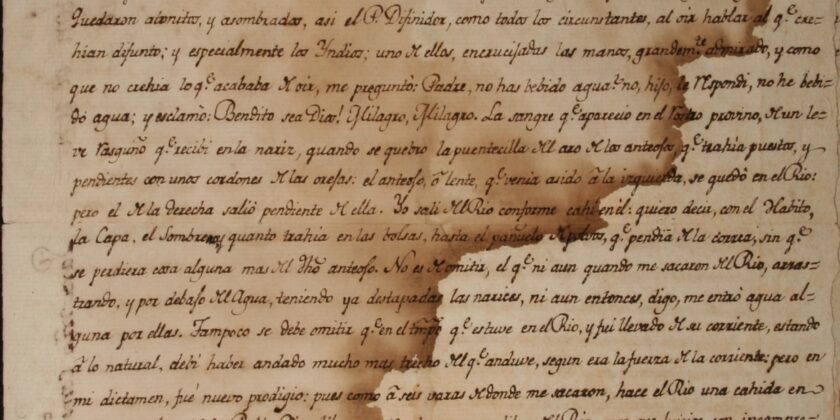 Quedaron atonitos, y asombrados, asi el P. Difinidor, como todos los circunstantes, al oir hablar al q.e cre-
hian difunto; y especialmente los Yndios; uno de ellos, encrucisadas las manos, grandem.te admirado, y como
que no crehia lo q.e acababa de oir, me preguntò: Padre, no has bebido agua? no, hijo, le respondi, no he bebi-
dó agua; y esclamò: Bendito sea Dios! Milagro, Milagro. La sangre q.e aparecio en el rostro provino, de un le-
ve rasguño q.e recibi en la nariz, quando se quebro la puentecilla del aro de los anteojos, q.e trahia puestos, y
pendientes con unos cordones de las orejas: el anteojo, ô lente, q.e venia asido â la izquierda, se quedó en el Rio:
pero el de la derecha salió pendiente de ella. Yo sali del Rio conforme cahi en èl: quiero decir, con el Habito,
la Capa, el Sombrero y quanto trahia en las bolsas, hasta el pañuelo de polvos, q.e pendia de la correa, sin q.e
se perdiera cosa alguna mas del dho anteojo. No es de omitir, el q.e ni aun quando me sacaron del Rio, arras-
trando, y por debajo del Agua, teniendo ya destapadas las narices, ni aun entonces, digo, me entrò agua al-
guna por ellas. Tampoco se debe omitir q.e en el tmpo q.e estuve en el Rio, y fui llevado de su corriente, estando
â lo natural, debí haber andado mucho mas trecho del q.e anduve, segun era la fuerza de la corriente; pero en
mi dictamen, fué nuevo prodigio: pues como â seis varas de donde me sacaron, hace el Rio una cahida en